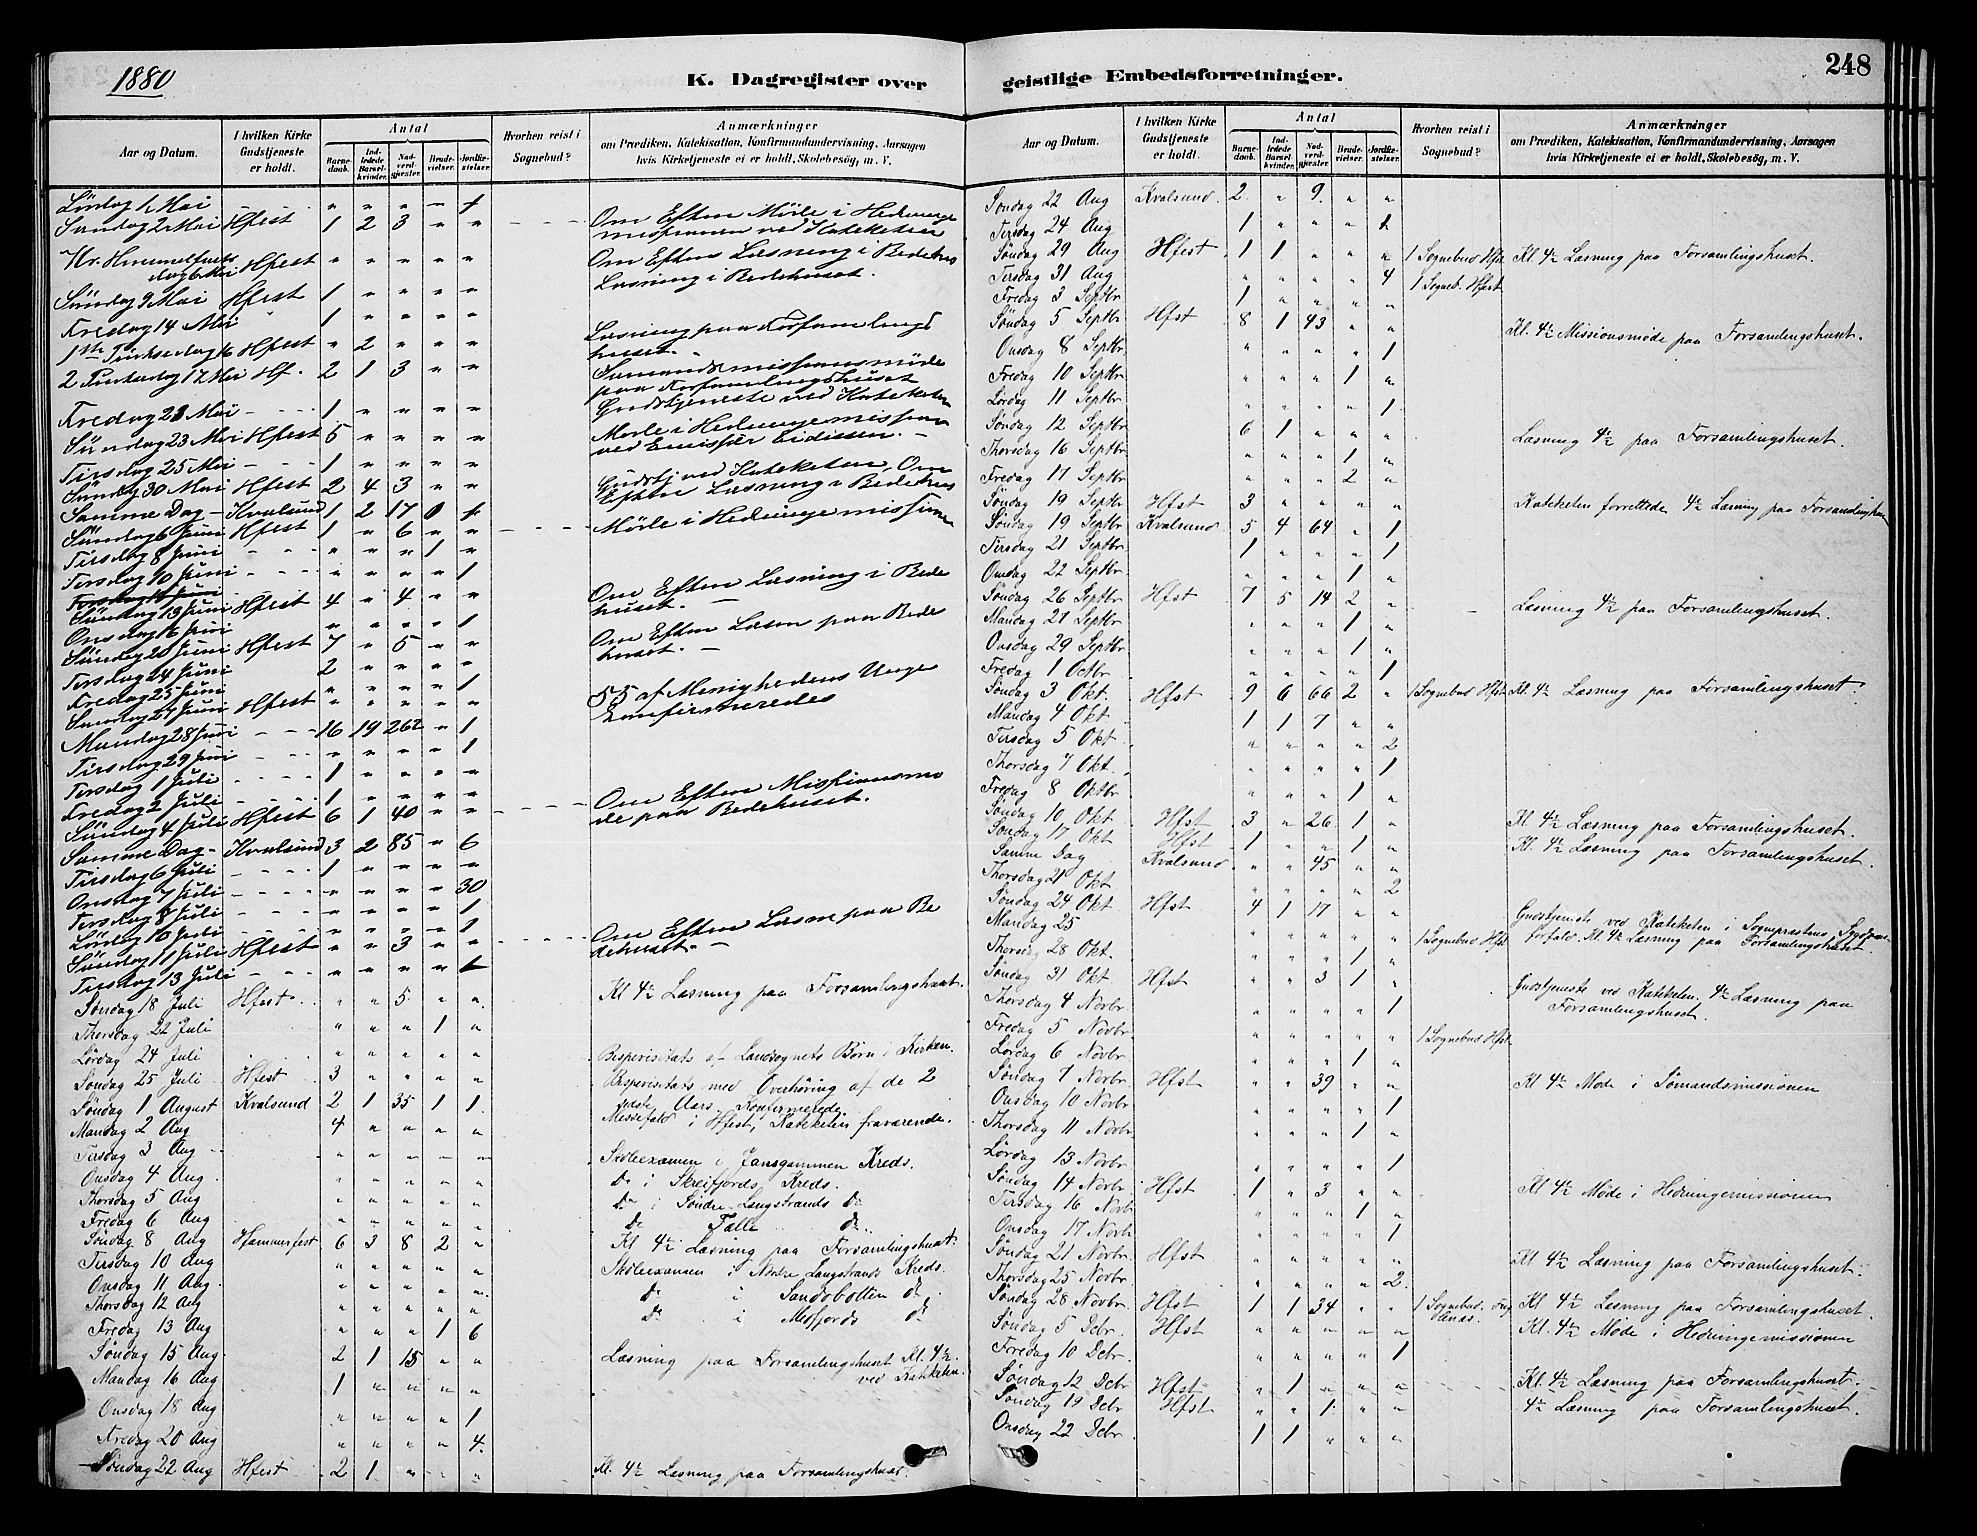 1880
K. Dagregister over
Aar og Datum. I hvilken Kirke Gudstjeneste er holdt. Antal Barnedaab. Indledede Barselkvinder. Nadverdgjester. Brudevielser. Jordfæstelser. Hvorhen reist i Sognebud? Anmærkninger om Prædiken, Katekisation, Konfirmandundervisning, Aarsagen hvis Kirketjeneste ei er holdt, Skolebesög, m. V.
Lördag 1 Mai " " " " 1
Søndag 2 Mai Hfest 1 2 3 " " Om Eften Møde i Hedninge
missionen ved Kateketen
Kr. Himmelfarts
dag 6 Mai Hfest " " " " " Om Eften Læsning i Bedehus
Søndag 9 Mai Hfest 1 " " " " Læsning i Bedehuset.
Fredag 14 Mai 1 " " " "
1ste Pintsedag 16 Hfest " 2 " " " Læsning paa Forsamlings
huset.
2 Pintsedag 17 Mai Hf. 2 1 3 " " Sømandsmissionsmøde
paa Forsamlingshuset
Fredag 21 Mai 1 " " " " Gudstjeneste ved Kateketen
Søndag 23 Mai Hfest 5 " " " " Møde i Hedningemission
ved Emissær Eidissen.
Tirsdag 25 Mai 1 " " " "
Søndag 30 Mai Hfest 2 4 3 " " Gudstj ved Kateketen. Om
Eften Læsning i Bedehus
Samme Dag Kvalsund 1 2 17 0 1
Søndag 6 Juni Hfest 1 " 6 " " Møde i Hedningemission
Tirsdag 8 Juni " " " 1 "
Torsdag 10 Juni " " " " 1
Søndag 13 Juni Hfest 4 " 4 " " Om Eften Læsning i Bede
huset.
Onsdag 16 Juni " " " " 1
Søndag 20 Juni Hfest 7 " 5 " " Om Eften Læsn paa Bede
huset.
Torsdag 24 Juni 2 " " " "
Fredag 25 Juni " " " " 1
Søndag 27 Juni Hfest " " " " " 55 af Menighedens Unge
Konfirmeredes
Mandag 28 Juni 16 19 262 " 1
Tirsdag 29 Juni " " " " 1
Torsdag 1 Juli 1 " " " "
Fredag 2 Juli 1 " " " "
Søndag 4 Juli Hfest 6 1 40 " " Om Eften Missionsmø
de paa Bedehuset.
Samme Dag Kvalsund 3 2 85 " 6
Tirsdag 6 Juli 1 " " " "
Onsdag 7 Juli " " " " 30
Torsdag 8 Juli " " " " 1
Lördag 10 Juli " " " " 1
Søndag 11 Juli Hfest " " 3 " " Om Eften Læsn paa Be
dehuset.
Tirsdag 13 Juli " " " " 1
Søndag 18 Juli Hfest " " 5 " " Kl 4½ Læsning paa Forsamlingshuset.
Thorsdag 22 Juli " " " 1 "
Lørdag 24 Juli " " " " " Bispevisitats af Landsognets Børn i Kirken.
Søndag 25 Juli Hfest 3 " " " " Bispevisitats med Overhøring af de 2
sidste Aars Konfirmerede.
Søndag 1 August Kvalsund 2 1 35 1 1 Messefald i Hfest, Kateketen fraværende.
Mandag 2 Aug 4 " " " "
Tirsdag 3 Aug " " " " " Skoleexamen i Jansgammen Kreds.
Onsdag 4 Aug " " " " " do i Skreifjords Kreds.
Thorsdag 5 Aug " " " " " do i Søndre Langstrands do
Fredag 6 Aug " " " " " do do
Søndag 8 Aug Hammerfest 6 3 8 2 " Kl 4½ Læsning paa Forsamlingshuset.
Tirsdag 10 Aug " " " " " Skoleexamen i Nordre Langstrands Kreds.
Onsdag 11 Aug " " " " " do i Sandobotten do
Thorsdag 12 Aug " " " " " do i Mefjords do
Fredag 13 Aug " " " 1 6
Søndag 15 Aug 2 1 15 " " Læsning paa Forsamlingshuset Kl. 4½
ved Kateketen.
Mandag 16 Aug 1 " " " "
Onsdag 18 Aug " " " " 1
Fredag 20 Aug " " " " 4
Søndag 22 Aug Hfest 2 1 " " " Kl. 4½ Læsning paa Forsamlingshuset.
geistlige Embedsforretninger.
248
Aar og Datum. I hvilken Kirke Gudstjeneste er holdt. Antal Barnedaab. Indledede Barselkvinder. Nadverdgjester. Brudevielser. Jordfæstelser. Hvorhen reist i Sognebud? Anmærkninger om Prædiken, Katekisation, Konfirmandundervisning, Aarsagen hvis Kirketjeneste ei er holdt, Skolebesög, m. V.
Søndag 22 Aug Kvalsund. 2 " 9 " "
Tirsdag 24 Aug 1 " " " 1
Søndag 29 Aug Hfest 1 1 " " " 1 Sognebud Hfest Kl. 4½ Læsning paa Forsamlingshuset.
Tirsdag 31 Aug " " " " 4 1 Sogneb. Hfest
Fredag 3 Septbr 1 " " " "
Søndag 5 Septbr Hfst 8 1 43 " " Kl. 4½ Missionsmøde paa Forsamlingshuset.
Onsdag 8 Septbr " " " " 1
Fredag 10 Septbr " " " 1 "
Lørdag 11 Septbr " " " " 1
Søndag 12 Septbr 6 1 " " " Læsning 4½ paa Forsamlingshuset.
Thorsdag 16 Septbr " " " 1 "
Fredag 17 Septbr " " " 2 "
Søndag 19 Septbr Hfst 3 " " " " Kateketen forrettede 4½ Læsning paa Forsamlingshus
Søndag 19 Septbr Kvalsund 5 4 64 " 1
Tirsdag 21 Septbr 1 " " " 1
Onsdag 22 Septbr " " " 1 "
Søndag 26 Septbr Hfst 7 5 14 2 " Læsning 4½ paa Forsamlingshuset.
Mandag 27 Septbr " " " 1 "
Onsdag 29 Septbr " " " 1 "
Fredag 1 Octbr " " " " 1
Søndag 3 Okt. Hfst 9 6 66 2 " 1 Sognebud Hfst Kl. 4½ Læsning paa Forsamlingshuset.
Mandag 4 Okt 1 1 7 " "
Tirsdag 5 Okt " " " " 2
Thorsdag 7 Okt. " " " " 1
Fredag 8 Oktbr " " " 1 "
Søndag 10 Okt Hfst 3 " 26 1 " Kl 4½ Læsning paa Forsamlingshuset.
Søndag 17 Okt Hfst 1 " " 1 " Kl. 4½ Læsning paa Forsamlingshuset.
Samme Dag Kvalsund " " 45 " "
Thorsdag 21 Okt " " " " 2
Søndag 24 Okt Hfst 4 1 17 " " Gudstjeneste ved Kateketen i Sogneprestens Sygdoms
Mandag 25 " " " " " 1 Sognebud Hfst forfald. Kl. 4½ Læsning paa Forsamlingshuset
Thorsdag 28 Okt. " " " 1 "
Søndag 31 Okt Hfst " " 3 1 " Gudstjeneste ved Kateketen. 4½ Læsning paa
Forsamlingshuset.
Thorsdag 4 Novbr " " " " 1
Fredag 5 Novbr " " " " " 1 Sognebud Hfst
Lørdag 6 Novbr " " " 1 "
Søndag 7 Novbr Hfst " " 39 " " Kl 4½ Møde i Sømandsmissionen
Onsdag 10 Novbr " " " " 1
Thorsdag 11 Novbr " " " 1 "
Lørdag 13 Novbr " " " " 1
Søndag 14 Novbr Hfst 1 " 3 " " Kl 4½ Møde i Hedningemissionen
Tirsdag 16 Novbr " " " 1 "
Onsdag 17 Novbr " " " " 1
Søndag 21 Novbr Hfst " " " " " Kl 4½ Læsning paa Forsamlingshuset.
Thorsdag 25 Novbr " " " " 2
Søndag 28 Novbr Hfst 1 1 34 " " 1 Sognebud. Kl 4½ Læsning paa Forsamlingshuset.
Søndag 5 Dcbr. Hfst " " " " " Kl. 4½ Møde i Hedningemissionen
Fredag 10 Dcbr. " " " " 1
Søndag 12 Dcbr Hfst " 1 " " " Kl. 4½ Læsning paa Forsamlingshuset.
Søndag 19 Dcbr Hfst " " 1 " " 4½ Læsning paa Forsamlingshuset.
Onsdag 22 Dcbr. 1 1 " " "